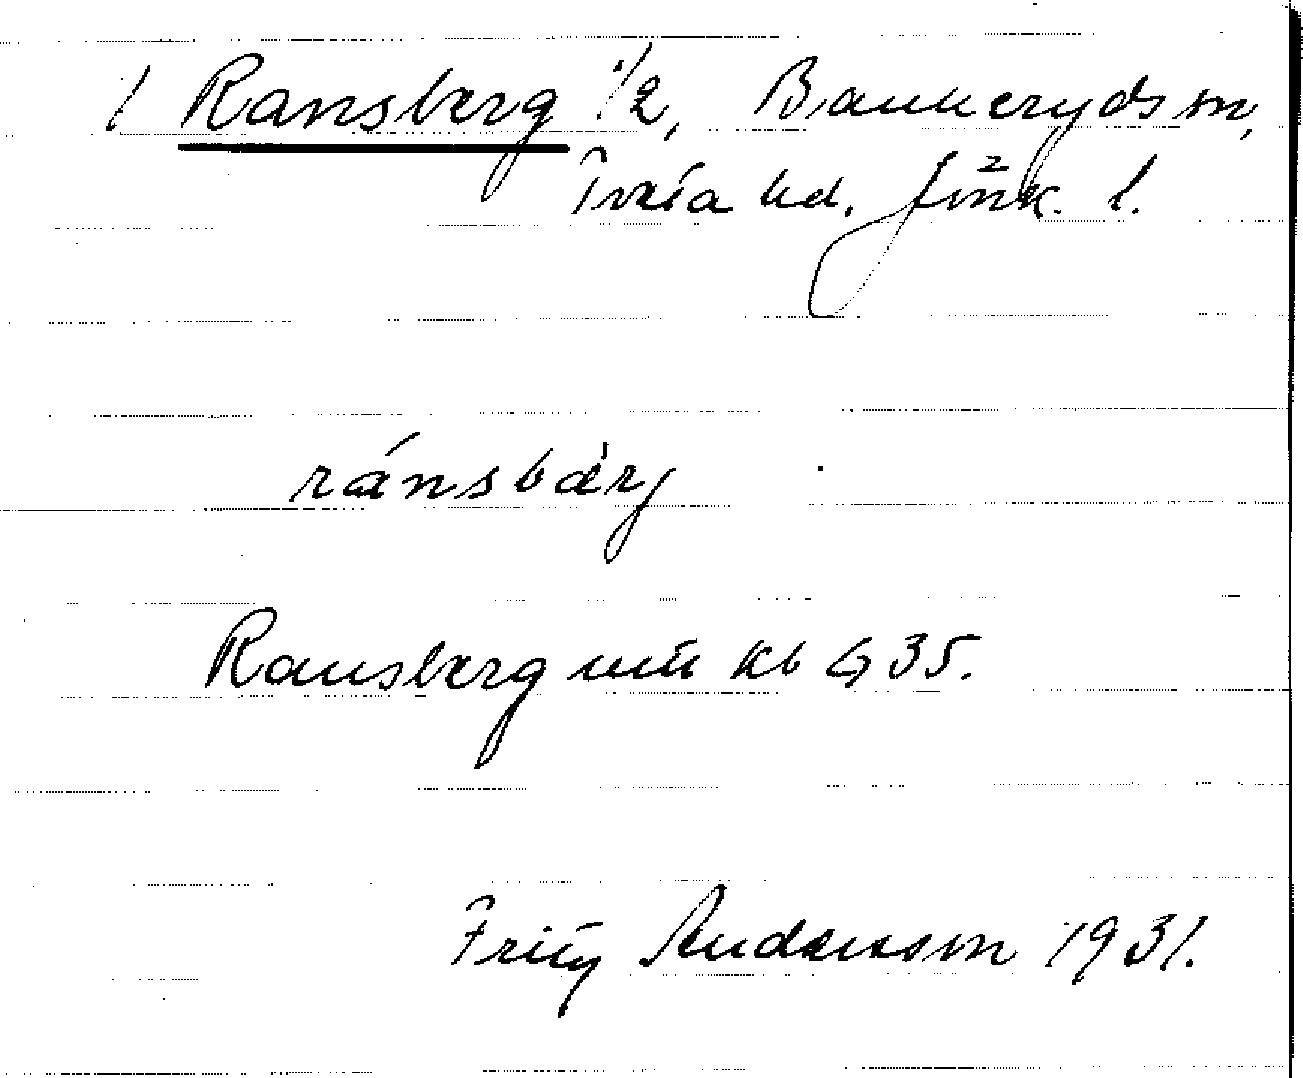 1 Ransberg 1/2, Bankeryds sn,
Tveta hd. Jönk. l.
ránsbär̀j
Ransberg mtl kb G 35.
Fritz Andersson 1931.